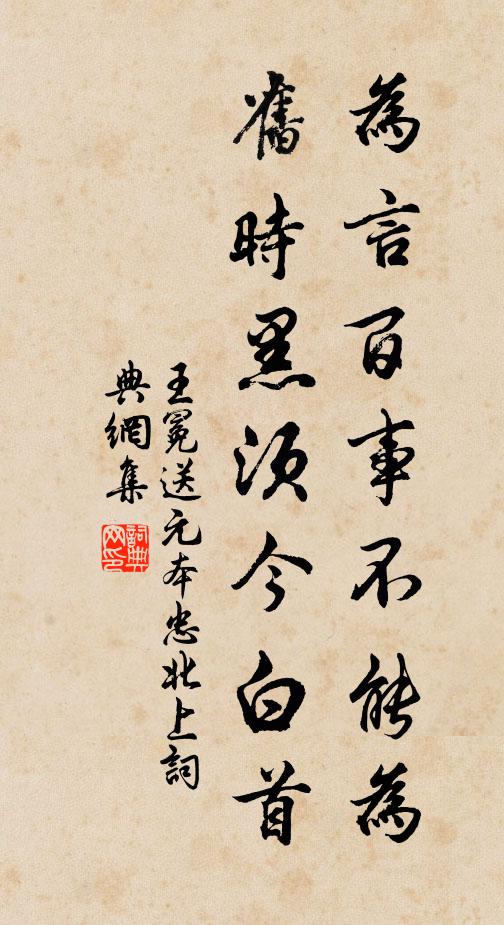 為言百事不能為
舊時黑須今白首
王冕送元本忠北上詞
典網集
詞典網印